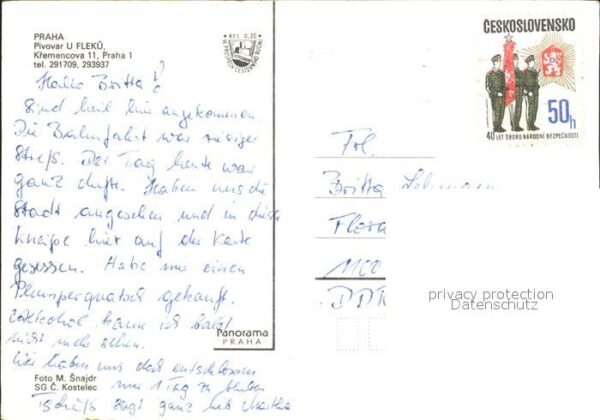 PRAHA
Pivovar U FLEKŮ,
Křemencova 11, Praha 1
tel. 291709, 293937
Kčs 0,20
Hallo Britta!
Sind heil hier angekommen.
Die Bahnfahrt war
Streß. Der Tag heute war
ganz dufte. Haben uns die
Stadt angesehen und in diese
Kneipe hier auf der Karte
gesessen. Habe mir einen
gekauft.
Alkohol kann ich bald
nicht mehr sehen.
Wir haben uns doch entschlossen
nur 1 Tag zu bleiben
Tschüß sagt ganz lieb Martha
Panorama
PRAHA
Foto M. Šnajdr
SG Č. Kostelec
ČESKOSLOVENSKO
50h
40 LET SBORU NÁRODNÍ BEZPEČNOSTI
Frl.
Britta
Flora
DDR
privacy protection
Datenschutz